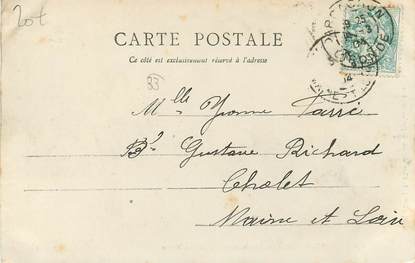 20t
CARTE POSTALE
Ce côté est exclusivement réservé à l'adresse
33
Mlle Yvonne Tarré
Bd Gustave Richard
Cholet
Maine et Loire